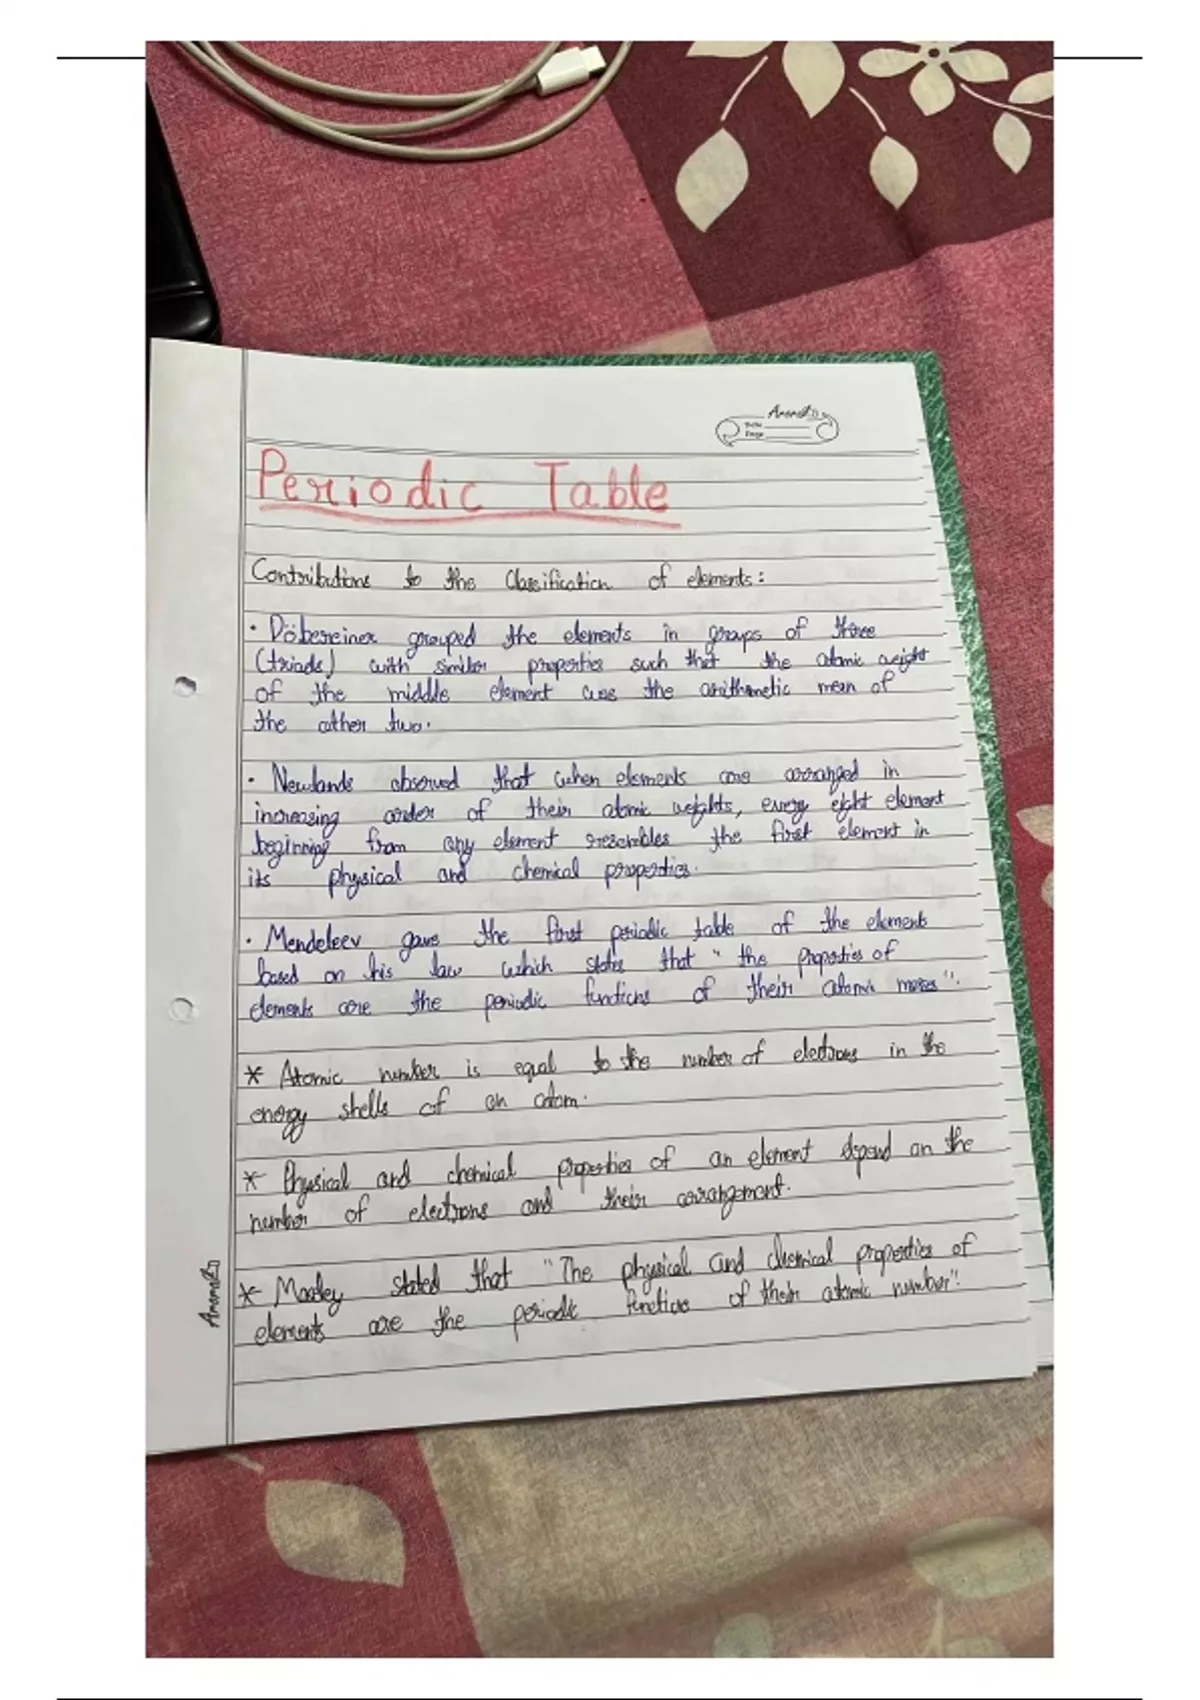 Amanat
Date
Page
Periodic Table
Contributions to the Classification of elements:
• Döbereiner grouped the elements in groups of three
(triads) with similar properties such that the atomic weight
of the middle element was the arithmetic mean of
the other two.
• Newlands observed that when elements are arranged in
increasing order of their atomic weights, every eight element
beginning from any element resembles the first element in
its physical and chemical properties.
• Mendeleev gave the first periodic table of the elements
based on his law which states that "the properties of
elements are the periodic functions of their atomic masses".
* Atomic number is equal to the number of electrons in the
energy shells of an atom.
* Physical and chemical properties of an element depend on the
number of electrons and their arrangement.
* Mosley stated that "The physical and chemical properties of
elements are the periodic functions of their atomic number".
Amanat